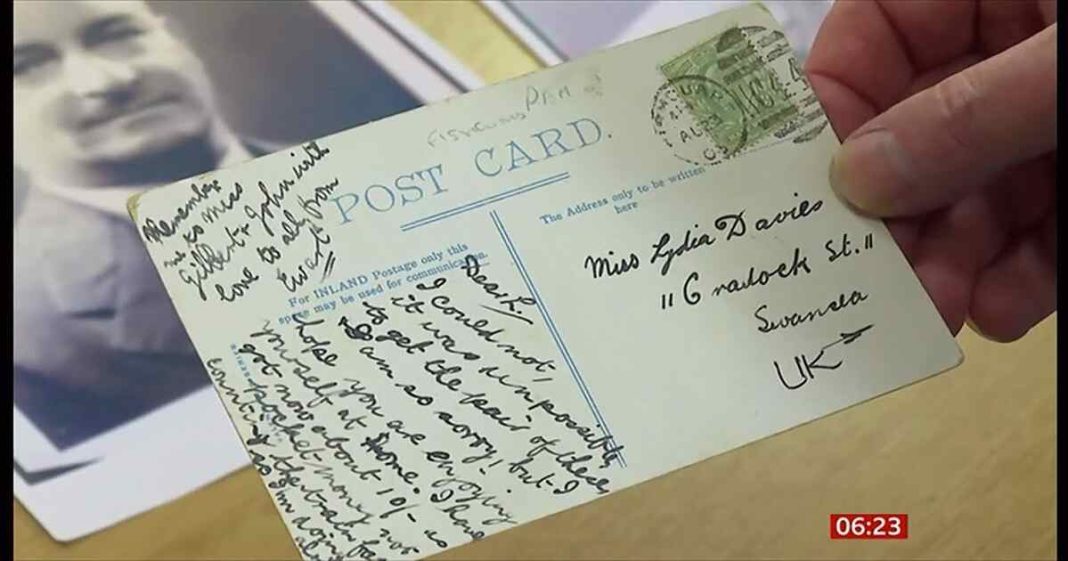 Remember
me to Miss
Gilbert & John with
love to all from
Ewart
POST CARD.
For INLAND Postage only this
space may be used for communication.
The Address only to be written
here
Dear L.
I could not,
it was impossible,
to get the pair of these
I am so sorry! but I
hope you are enjoying
yourself at home. I have
got now about 10/- as
pocket money not
counting the train fare
so I'm doing
Miss Lydia Davies
"11 Cradock St."
Swansea
UK
06:23